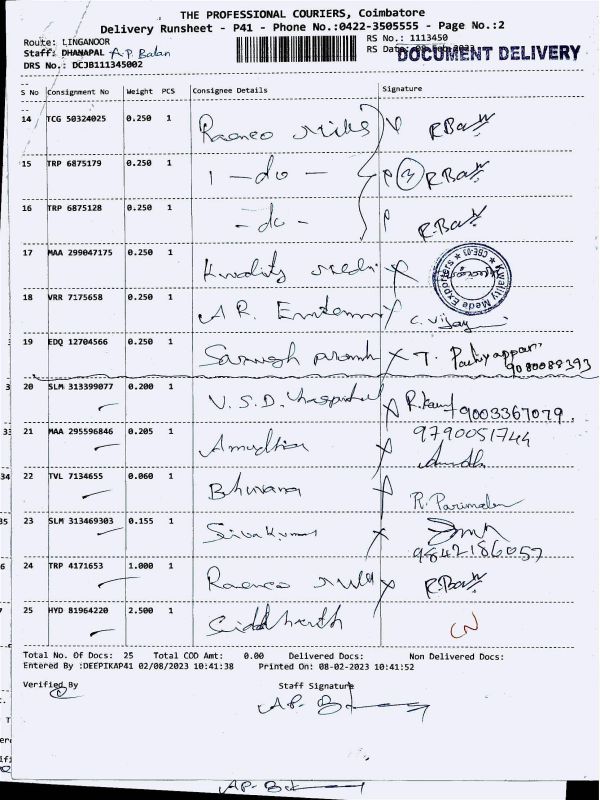 THE PROFESSIONAL COURIERS, Coimbatore
Delivery Runsheet - P41 - Phone No.:0422-3505555 - Page No.:2
Route: LINGANOOR RS No.: 1113450
Staff: DHANAPAL A.P. Balan RS Date: DOCUMENT DELIVERY
DRS No.: DCJB111345002
S No Consignment No Weight PCS Consignee Details Signature
14 TCG 50324025 0.250 1
15 TRP 6875179 0.250 1 1 - do -
16 TRP 6875128 0.250 1 - do -
17 MAA 299047175 0.250 1 Kwality Medi X Kwality Mede Exporters CBE-03
18 VRR 7175658 0.250 1 A R. C. Vijay
19 EDQ 12704566 0.250 1 X T. Pachiyappan 9080088393
20 SLM 313399077 0.200 1 V.S.D. Hospital X 9003367079.
21 MAA 295596846 0.205 1 Amudha X 9790051744
22 TVL 7134655 0.060 1 Bhuvana R. Parimalan
23 SLM 313469303 0.155 1 Siva Kumar X 9842186057
24 TRP 4171653 1.000 1 X
25 HYD 81964220 2.500 1 Siddharth CN
Total No. Of Docs: 25 Total COD Amt: 0.00 Delivered Docs: Non Delivered Docs:
Entered By :DEEPIKAP41 02/08/2023 10:41:38 Printed On: 08-02-2023 10:41:52
Verified By Staff Signature
A.P. B
A.P. B